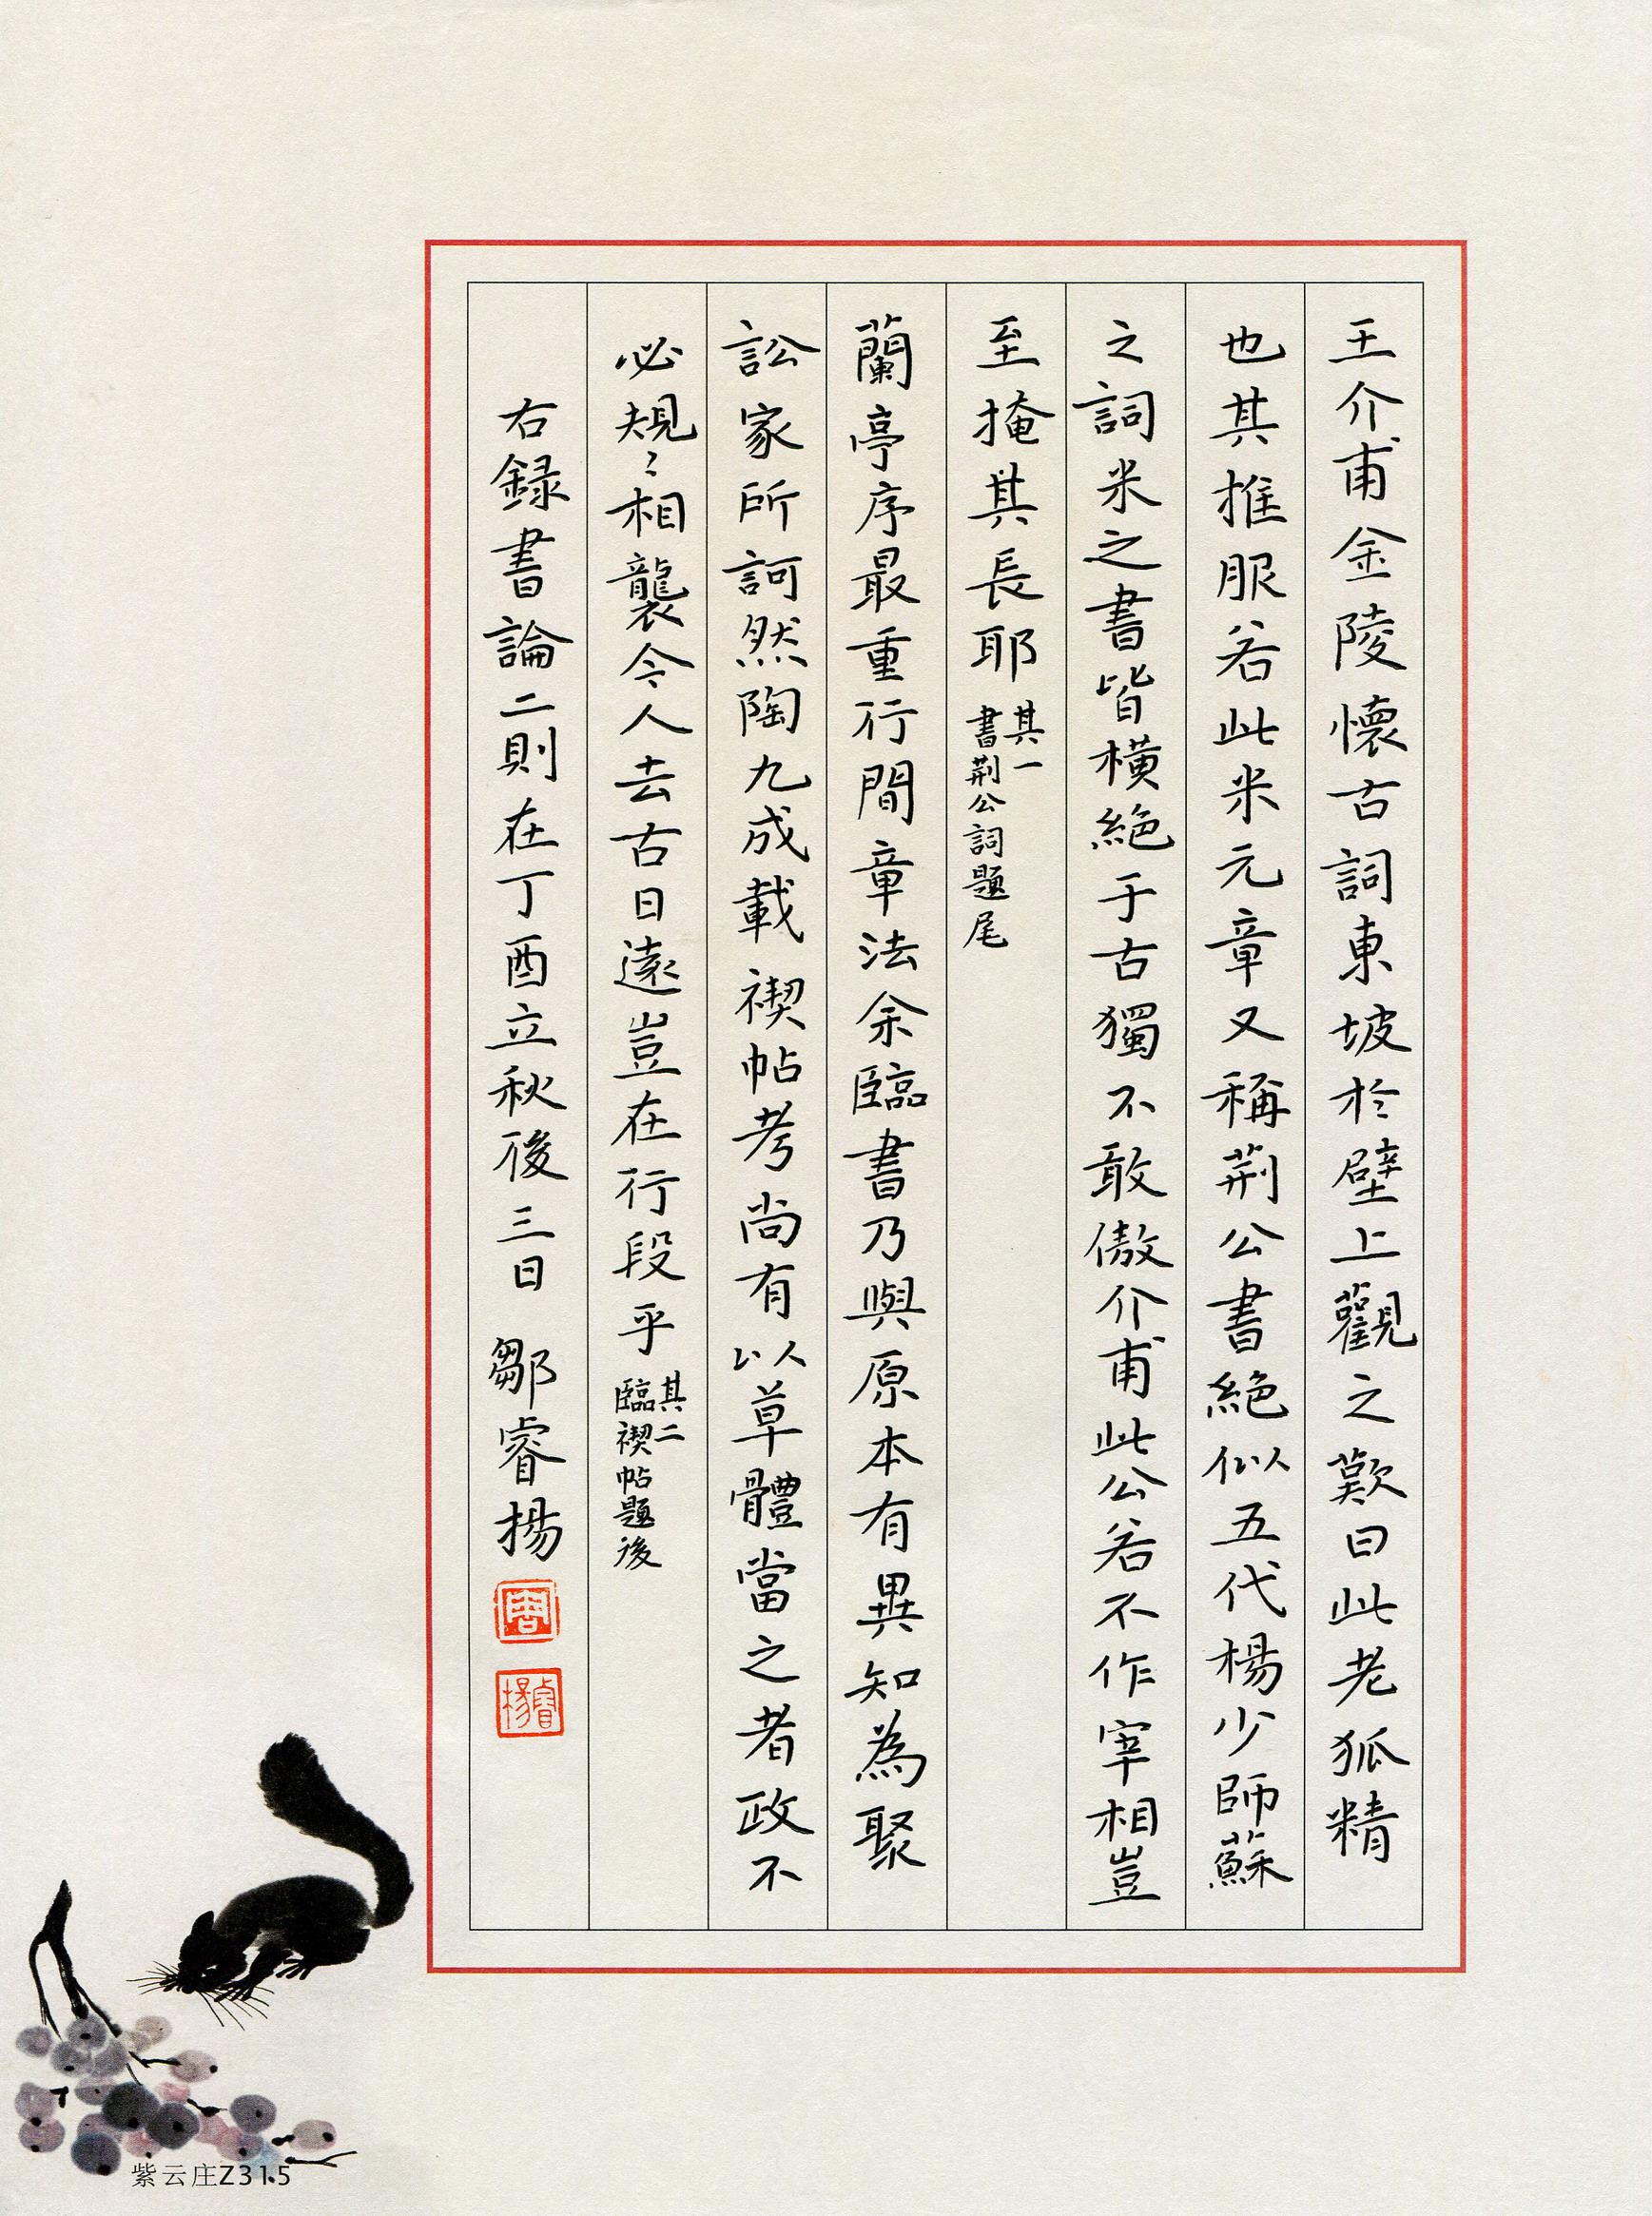 王介甫金陵懷古詞東坡於壁上觀之歎曰此老狐精
也其推服若此米元章又稱荊公書絕似五代楊少師蘇
之詞米之書皆橫絕于古獨不敢傲介甫此公若不作宰相豈
至掩其長耶
其一
書荊公詞題尾
蘭亭序最重行間章法余臨書乃與原本有異知為聚
訟家所訶然陶九成載禊帖考尚有以草體當之者政不
必規〻相襲今人去古日遠豈在行段乎
其二
臨禊帖題後
右録書論二則在丁酉立秋後三日 鄒睿揚
睿揚
紫云庄Z31.5